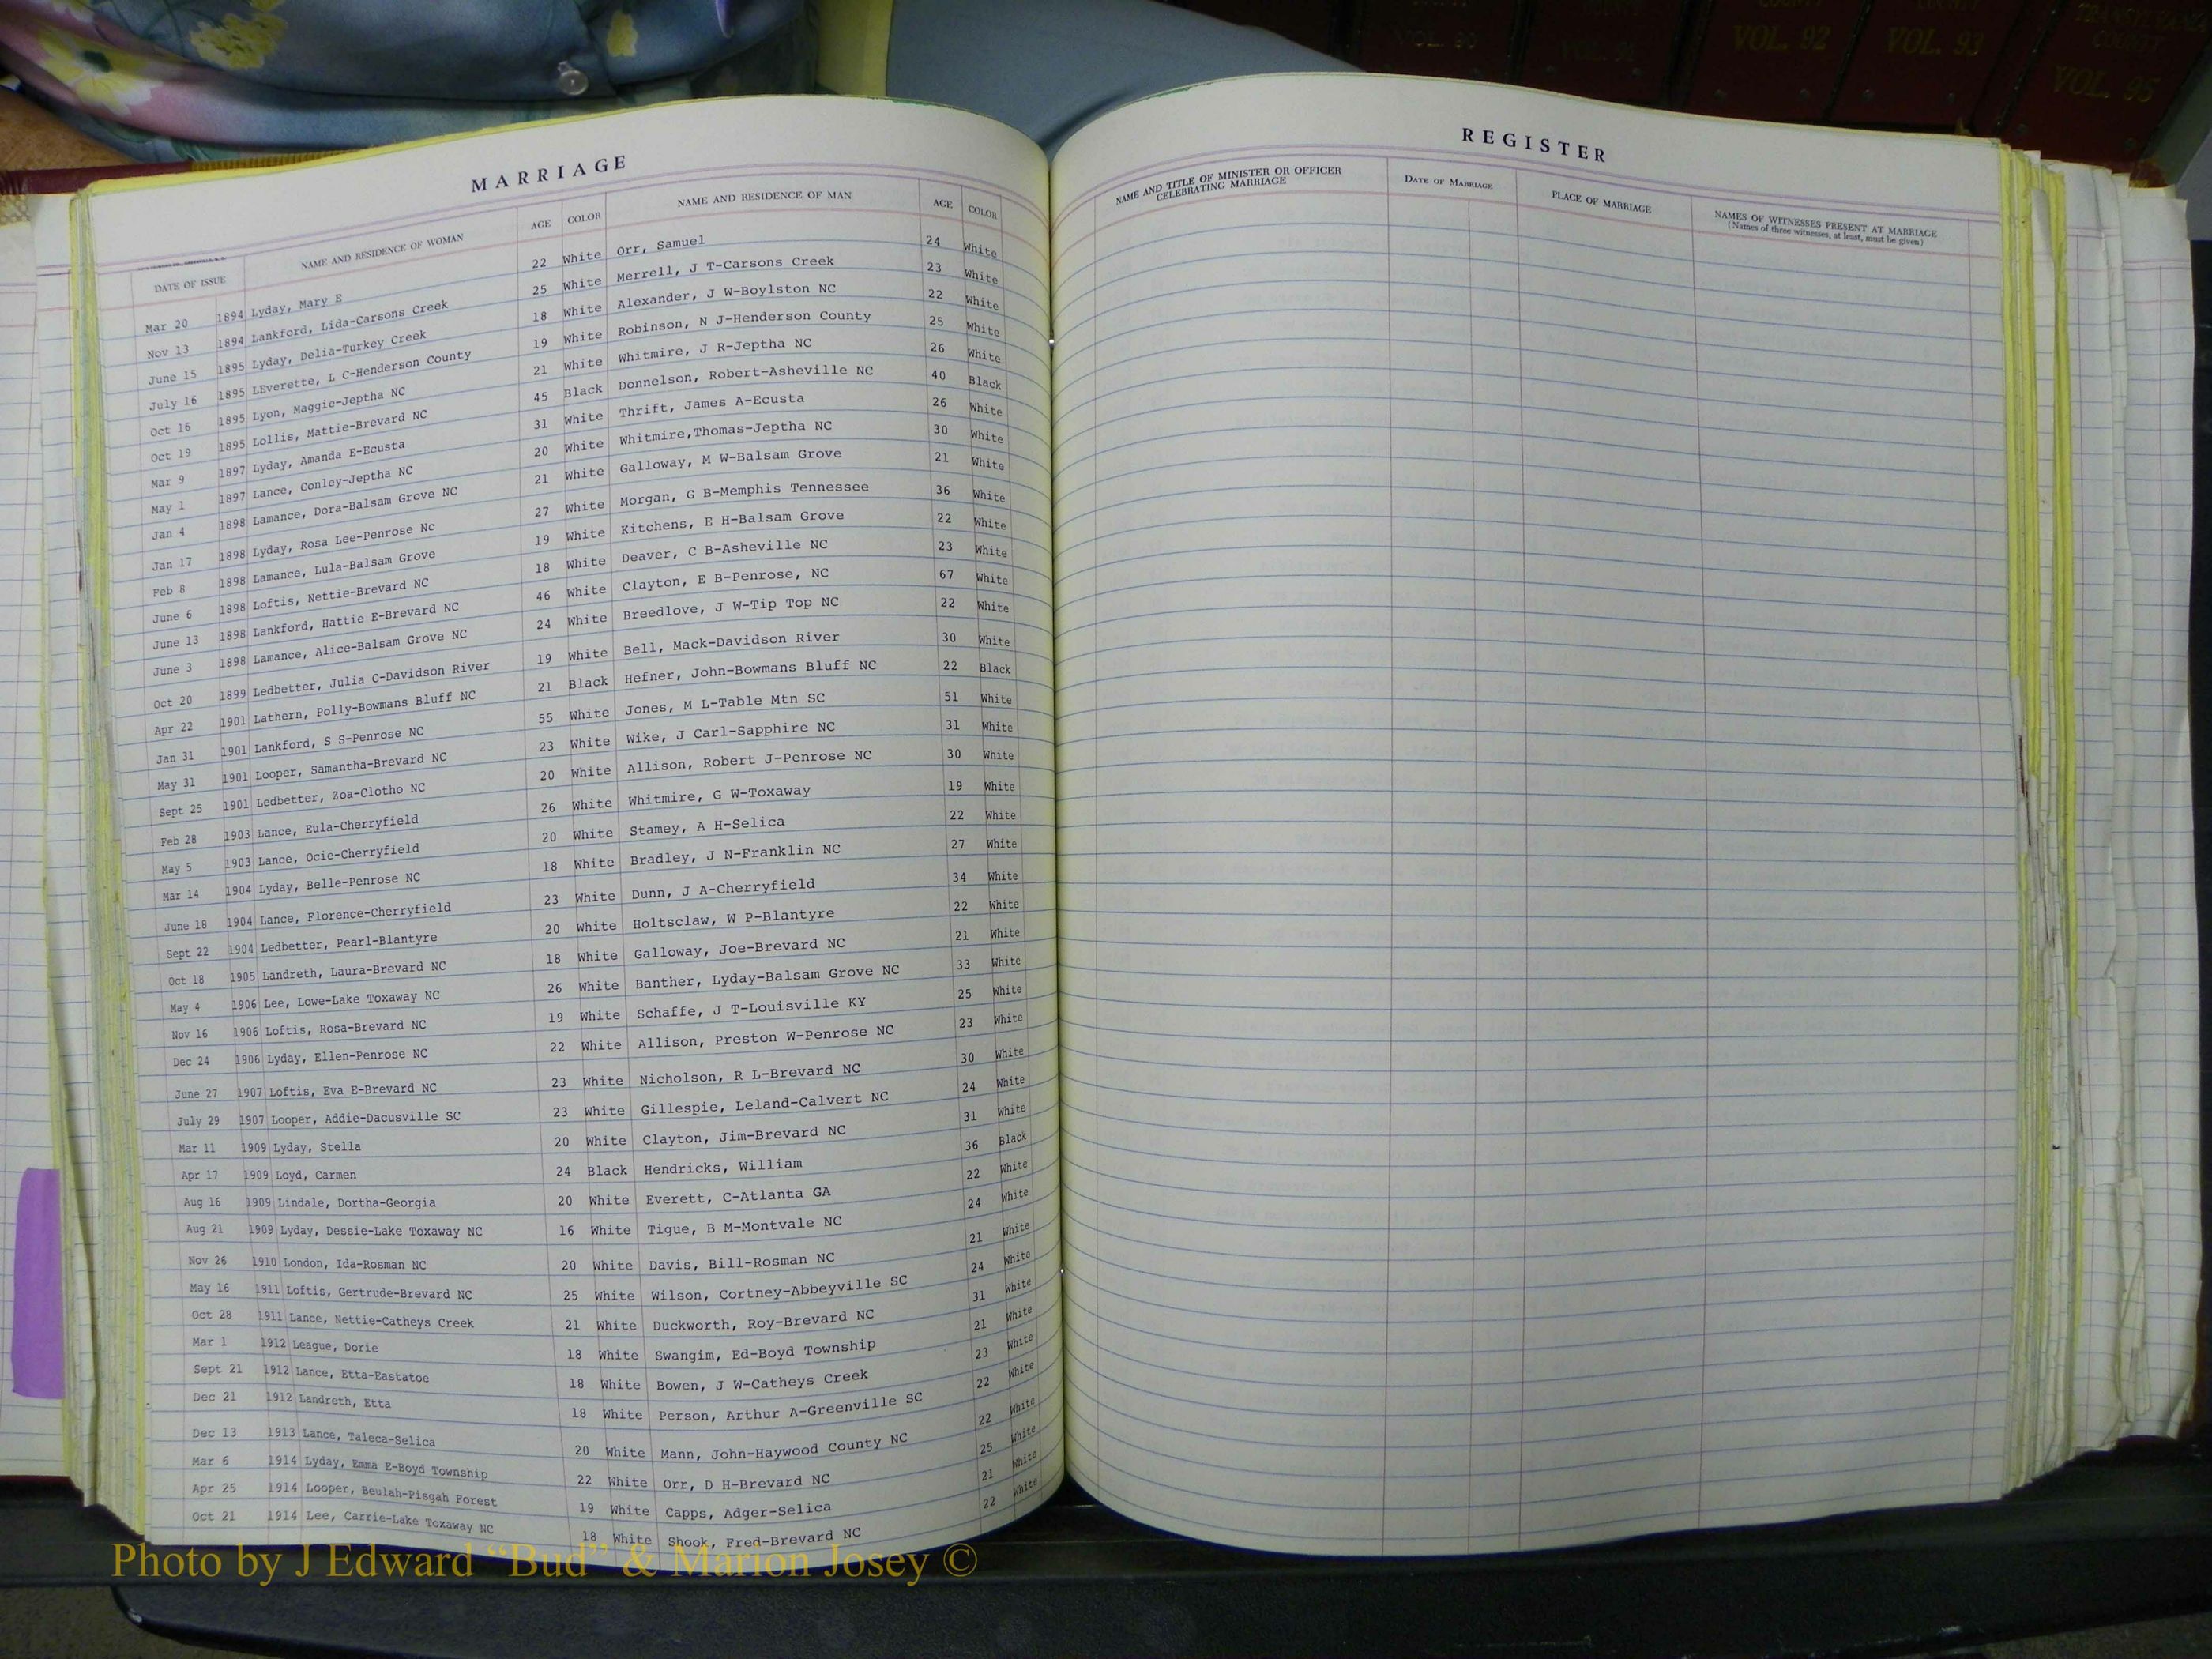 VOL. 92
VOL. 93
TRANSYLVANIA
COUNTY
VOL. 95
MARRIAGE
DATE OF ISSUE NAME AND RESIDENCE OF WOMAN AGE COLOR NAME AND RESIDENCE OF MAN AGE COLOR
Mar 20 1894 Lyday, Mary E 22 White Orr, Samuel 24 White
Nov 13 1894 Lankford, Lida-Carsons Creek 25 White Merrell, J T-Carsons Creek 23 White
June 15 1895 Lyday, Delia-Turkey Creek 18 White Alexander, J W-Boylston NC 22 White
July 16 1895 LEverette, L C-Henderson County 19 White Robinson, N J-Henderson County 25 White
Oct 16 1895 Lyon, Maggie-Jeptha NC 21 White Whitmire, J R-Jeptha NC 26 White
Oct 19 1895 Lollis, Mattie-Brevard NC 45 Black Donnelson, Robert-Asheville NC 40 Black
Mar 9 1897 Lyday, Amanda E-Ecusta 31 White Thrift, James A-Ecusta 26 White
May 1 1897 Lance, Conley-Jeptha NC 20 White Whitmire,Thomas-Jeptha NC 30 White
Jan 4 1898 Lamance, Dora-Balsam Grove NC 21 White Galloway, M W-Balsam Grove 21 White
Jan 17 1898 Lyday, Rosa Lee-Penrose Nc 27 White Morgan, G B-Memphis Tennessee 36 White
Feb 8 1898 Lamance, Lula-Balsam Grove 19 White Kitchens, E H-Balsam Grove 22 White
June 6 1898 Loftis, Nettie-Brevard NC 18 White Deaver, C B-Asheville NC 23 White
June 13 1898 Lankford, Hattie E-Brevard NC 46 White Clayton, E B-Penrose, NC 67 White
June 3 1898 Lamance, Alice-Balsam Grove NC 24 White Breedlove, J W-Tip Top NC 22 White
Oct 20 1899 Ledbetter, Julia C-Davidson River 19 White Bell, Mack-Davidson River 30 White
Apr 22 1901 Lathern, Polly-Bowmans Bluff NC 21 Black Hefner, John-Bowmans Bluff NC 22 Black
Jan 31 1901 Lankford, S S-Penrose NC 55 White Jones, M L-Table Mtn SC 51 White
May 31 1901 Looper, Samantha-Brevard NC 23 White Wike, J Carl-Sapphire NC 31 White
Sept 25 1901 Ledbetter, Zoa-Clotho NC 20 White Allison, Robert J-Penrose NC 30 White
Feb 28 1903 Lance, Eula-Cherryfield 26 White Whitmire, G W-Toxaway 19 White
May 5 1903 Lance, Ocie-Cherryfield 20 White Stamey, A H-Selica 22 White
Mar 14 1904 Lyday, Belle-Penrose NC 18 White Bradley, J N-Franklin NC 27 White
June 18 1904 Lance, Florence-Cherryfield 23 White Dunn, J A-Cherryfield 34 White
Sept 22 1904 Ledbetter, Pearl-Blantyre 20 White Holtsclaw, W P-Blantyre 22 White
Oct 18 1905 Landreth, Laura-Brevard NC 18 White Galloway, Joe-Brevard NC 21 White
May 4 1906 Lee, Lowe-Lake Toxaway NC 26 White Banther, Lyday-Balsam Grove NC 33 White
Nov 16 1906 Loftis, Rosa-Brevard NC 19 White Schaffe, J T-Louisville KY 25 White
Dec 24 1906 Lyday, Ellen-Penrose NC 22 White Allison, Preston W-Penrose NC 23 White
June 27 1907 Loftis, Eva E-Brevard NC 23 White Nicholson, R L-Brevard NC 30 White
July 29 1907 Looper, Addie-Dacusville SC 23 White Gillespie, Leland-Calvert NC 24 White
Mar 11 1909 Lyday, Stella 20 White Clayton, Jim-Brevard NC 31 White
Apr 17 1909 Loyd, Carmen 24 Black Hendricks, William 36 Black
Aug 16 1909 Lindale, Dortha-Georgia 20 White Everett, C-Atlanta GA 22 White
Aug 21 1909 Lyday, Dessie-Lake Toxaway NC 16 White Tigue, B M-Montvale NC 24 White
Nov 26 1910 London, Ida-Rosman NC 20 White Davis, Bill-Rosman NC 21 White
May 16 1911 Loftis, Gertrude-Brevard NC 25 White Wilson, Cortney-Abbeyville SC 24 White
Oct 28 1911 Lance, Nettie-Catheys Creek 21 White Duckworth, Roy-Brevard NC 31 White
Mar 1 1912 League, Dorie 18 White Swangim, Ed-Boyd Township 21 White
Sept 21 1912 Lance, Etta-Eastatoe 18 White Bowen, J W-Catheys Creek 23 White
Dec 21 1912 Landreth, Etta 18 White Person, Arthur A-Greenville SC 22 White
Dec 13 1913 Lance, Taleca-Selica 20 White Mann, John-Haywood County NC 22 White
Mar 6 1914 Lyday, Emma E-Boyd Township 22 White Orr, D H-Brevard NC 25 White
Apr 25 1914 Looper, Beulah-Pisgah Forest 19 White Capps, Adger-Selica 21 White
Oct 21 1914 Lee, Carrie-Lake Toxaway NC 18 White Shook, Fred-Brevard NC 22 White
REGISTER
NAME AND TITLE OF MINISTER OR OFFICER
CELEBRATING MARRIAGE
DATE OF MARRIAGE
PLACE OF MARRIAGE
NAMES OF WITNESSES PRESENT AT MARRIAGE
(Names of three witnesses, at least, must be given)
Photo by J Edward “Bud” & Marion Josey ©